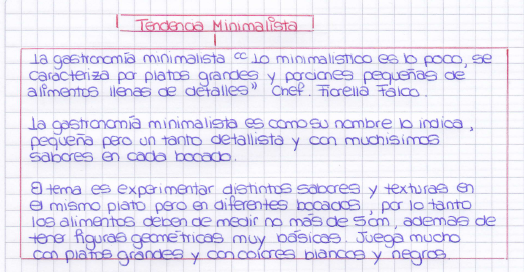 Tendencia Minimalista
La gastronomía minimalista "Lo minimalistico es lo poco, se
caracteriza por platos grandes y porciones pequeñas de
alimentos llenas de detalles" Chef. Fiorella Falco.
La gastronomía minimalista es como su nombre lo indica,
pequeña pero un tanto detallista y con muchisimos
sabores en cada bocado.
El tema es experimentar distintos sabores y texturas en
el mismo plato pero en diferentes bocados, por lo tanto
los alimentos deben de medir no más de 5cm, además de
tener figuras geométricas muy básicas. Juega mucho
con platos grandes y con colores blancos y negros.